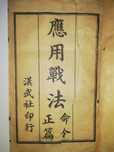 應用戰法
命令
正篇
漢武社印行